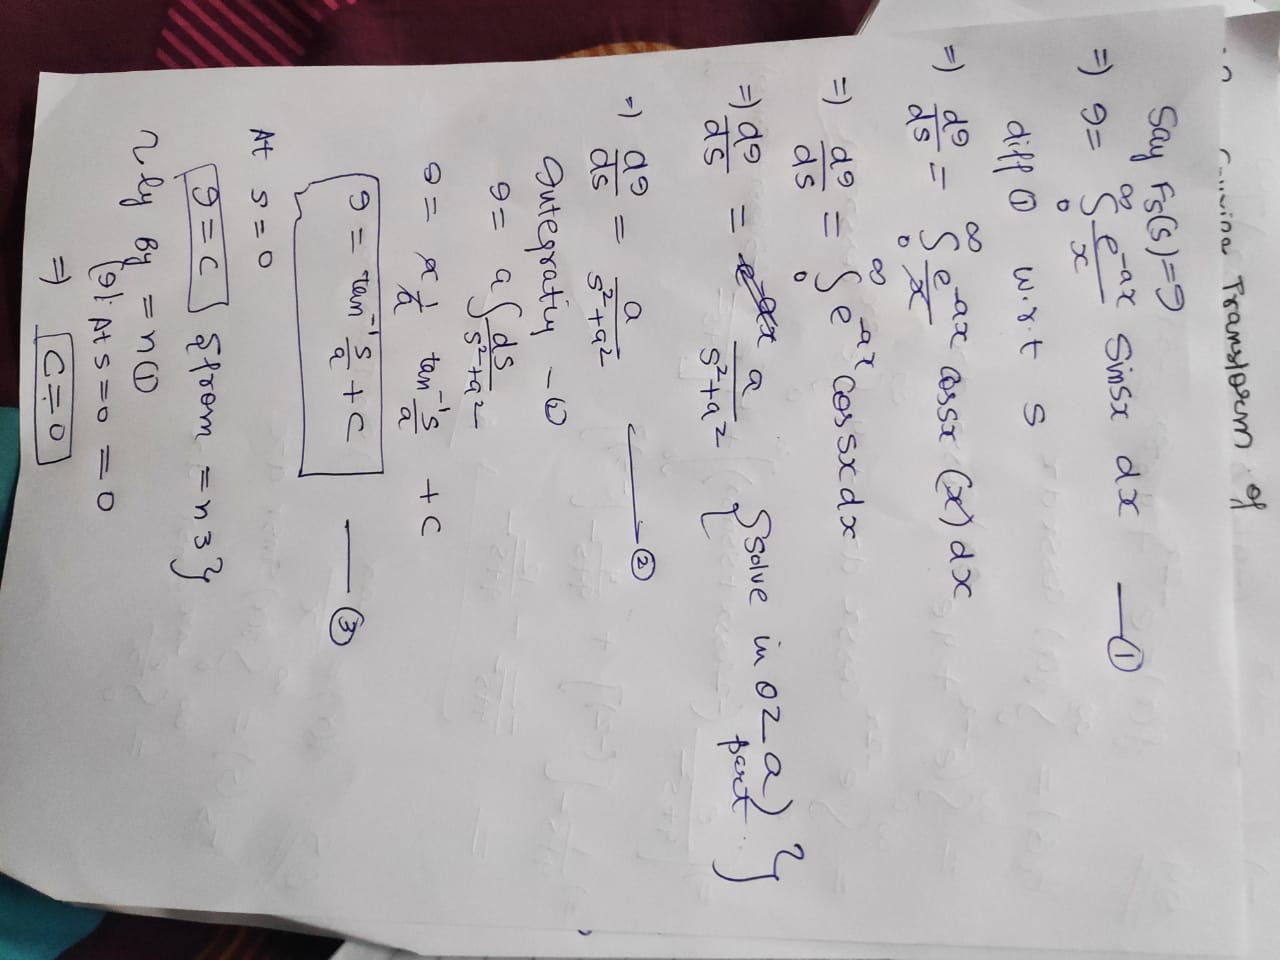 Transform of
Say Fs(s) = I
=) I = ∫₀^∞ e^-ax/x Sinsx dx —— ①
diff ① w.r.t s
=) dI/ds = ∫₀^∞ e^-ax/x cossx (x) dx
=) dI/ds = ∫₀^∞ e^-ax cossxdx
=) dI/ds = a/s²+a² {solve in Q2 a) part.}
=) dI/ds = a/s²+a² —— ②
Integratiy - ②
I = a∫ds/s²+a²
I = a 1/a tan⁻¹ s/a + C
I = tan⁻¹ s/a + C —— ③
At s = 0
I = C {from =n 3}
~ly By =n ①
(I): At s = 0 = 0
=) C = 0